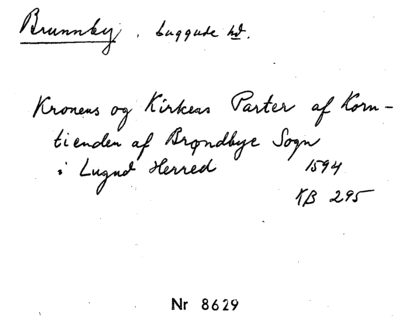 Brunnby, Luggude hd.
Kronens og Kirkens Parter af Korn-
tienden af Brøndbye Sogn
i Lugud Herred 1594
KB 295
Nr 8629